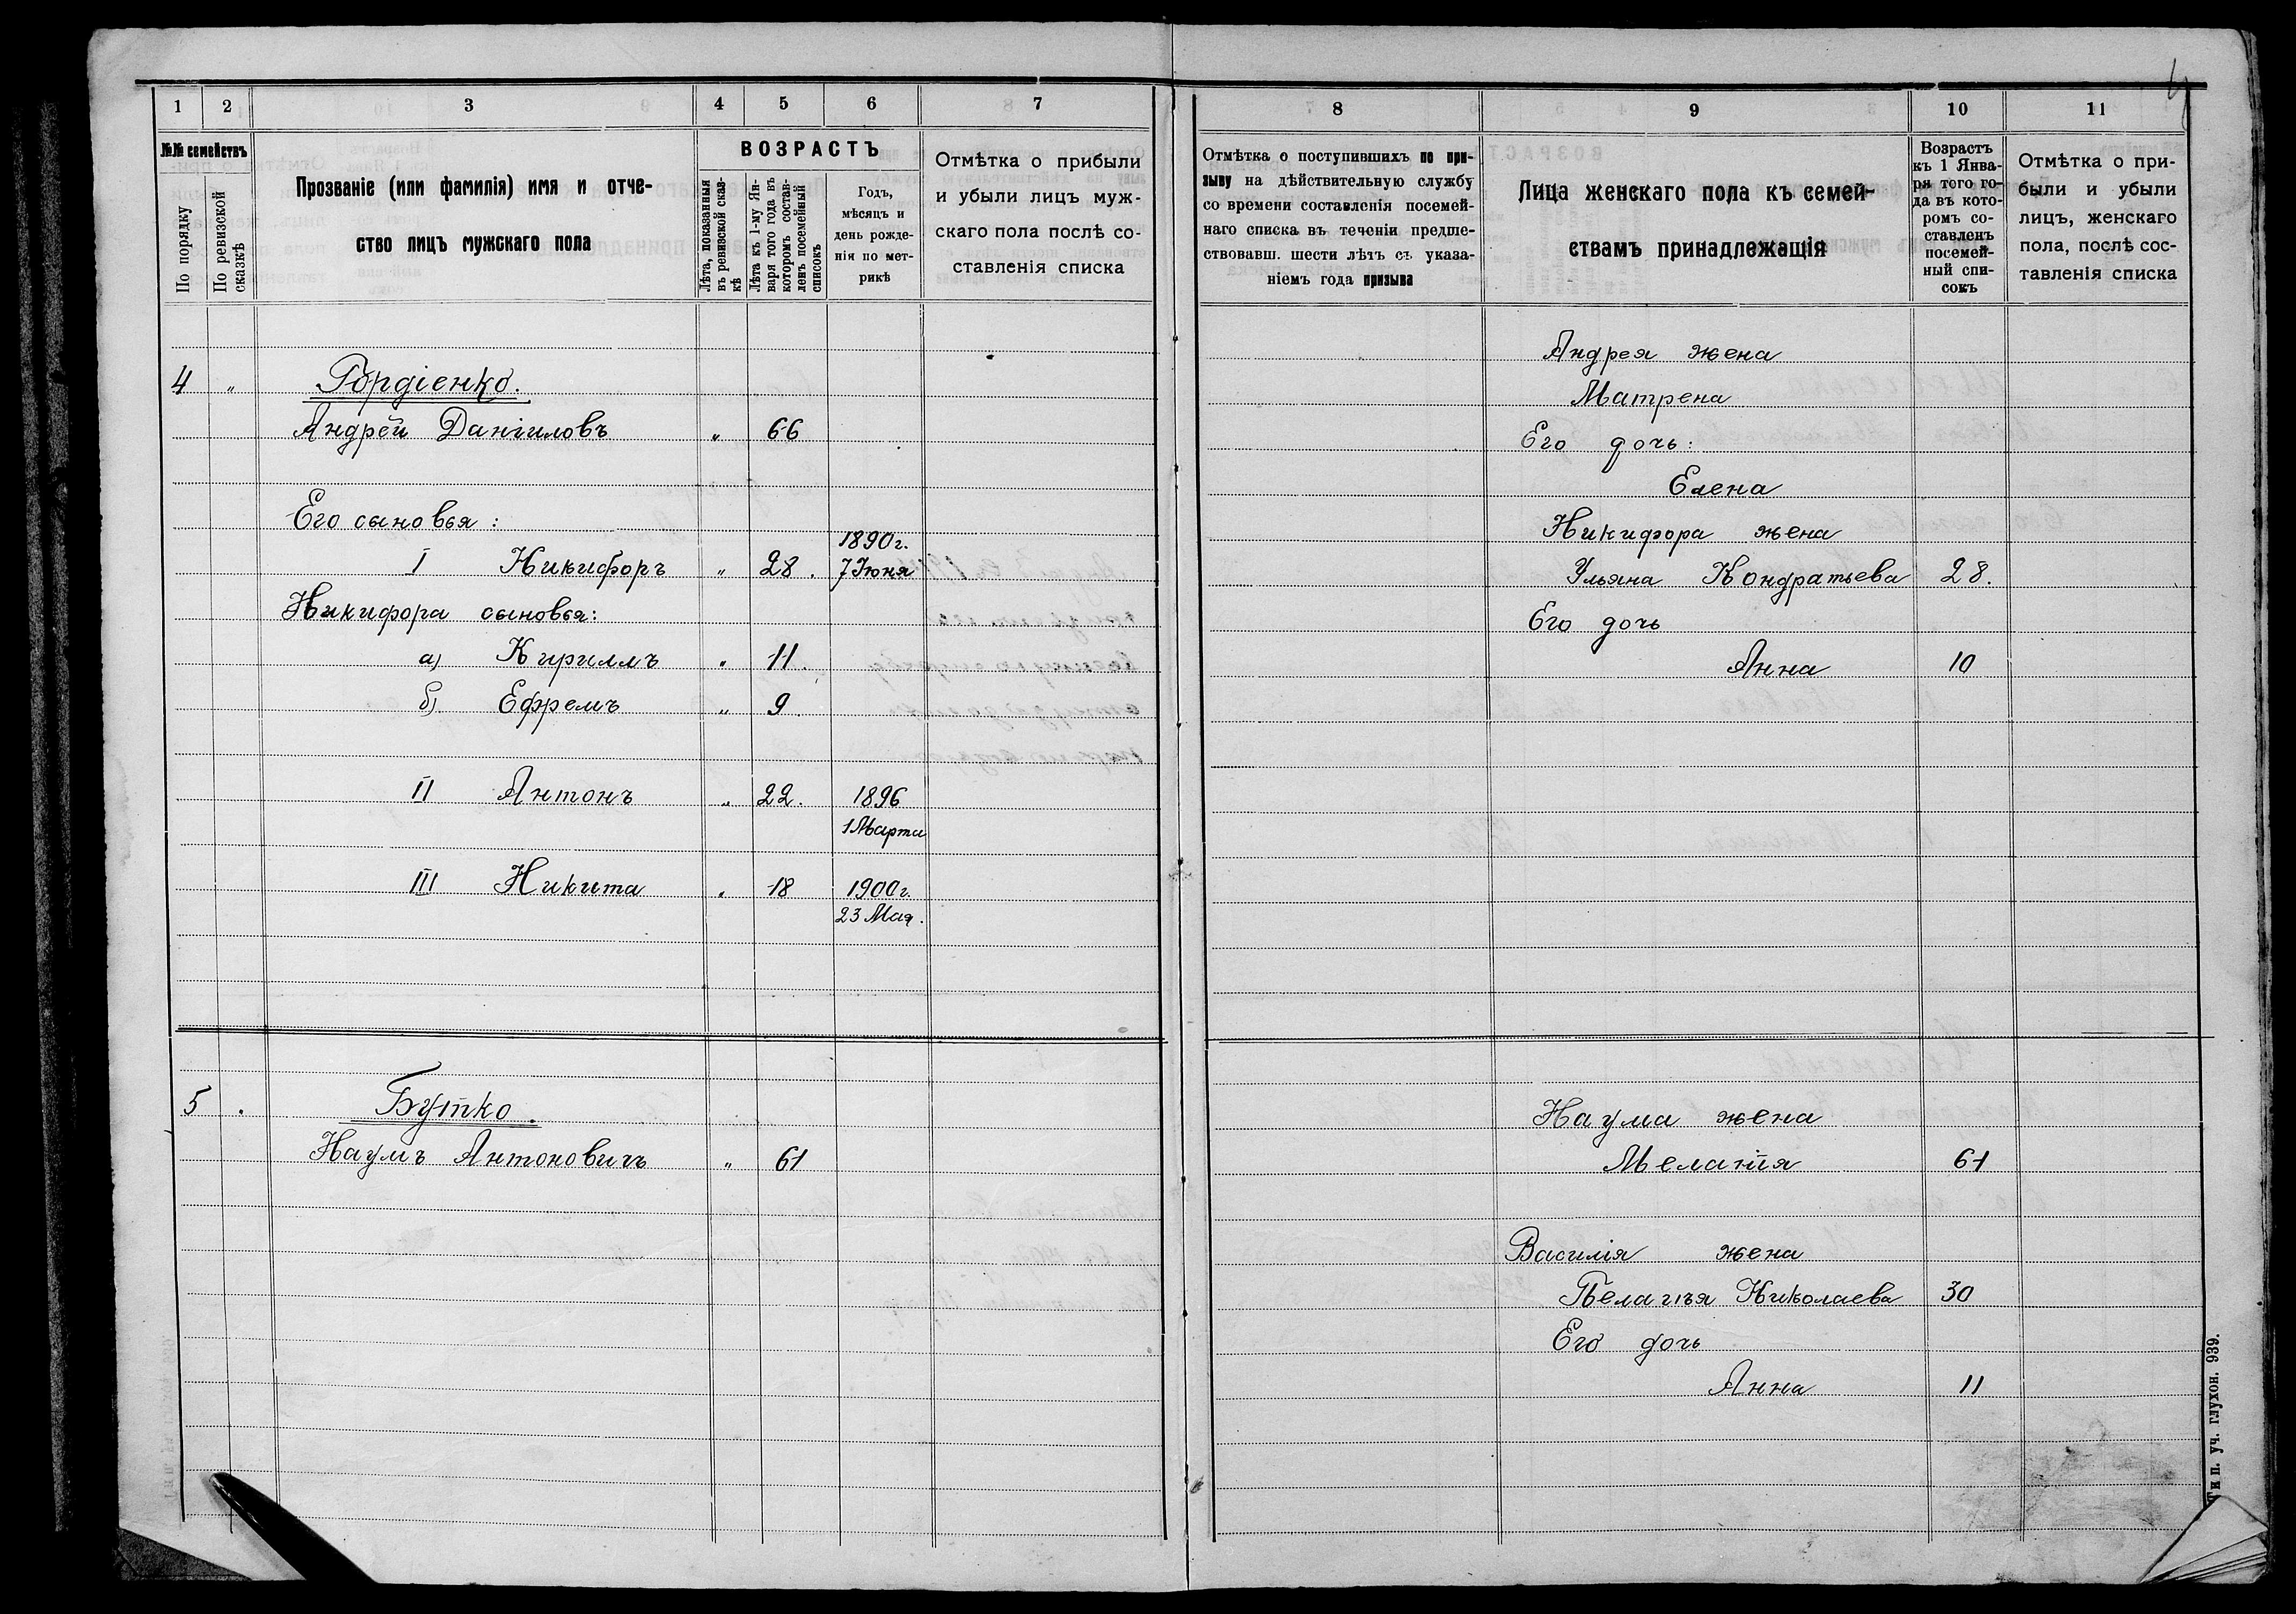 4
1 2 3 4 5 6 7
№№ семействъ
По порядку
По ревизской сказкѣ
Прозваніе (или фамилія) имя и отче-
ство лицъ мужскаго пола
ВОЗРАСТЪ
Лѣта, показанныя
въ ревизской сказ-
кѣ
Лѣта къ 1-му Ян-
варя того года въ
которомъ состав-
ленъ посемейный
списокъ
Годъ,
мѣсяцъ и
день рожде-
нія по мет-
рикѣ
Отмѣтка о прибыли
и убыли лицъ муж-
скаго пола послѣ со-
ставленія списка
4 „ Гордіенко.
Андрей Даніиловъ „ 66
Его сыновья:
1890г.
I Никифоръ „ 28. 7 Іюня
Никифора сыновья:
а) Кириллъ „ 11.
б) Ефремъ „ 9
II Антонъ „ 22. 1896
1 Марта
III Никита „ 18 1900г.
23 Мая.
5 . Бутко.
Наумъ Антоновичъ „ 61
8 9 10 11
Отмѣтка о поступившихъ по при-
зыву на дѣйствительную службу
со времени составленія посемей-
наго списка въ теченіи предше-
ствовавш. шести лѣтъ съ указа-
ніемъ года призыва
Лица женскаго пола къ семей-
ствамъ принадлежащія
Возрастъ
къ 1 Янва-
ря того го-
да въ кото-
ромъ со-
ставленъ
посемей-
ный спи-
сокъ
Отмѣтка о при-
были и убыли
лицъ, женскаго
пола, послѣ сос-
тавленія списка
Андрея жена
Матрена
Его дочь:
Елена
Никифора жена
Ульяна Кондратьева 28.
Его дочь
Анна 10
Наума жена
Меланія 61
Василія жена
Пелагія Николаева 30
Его дочь
Анна 11
Тип. уч. глухон. 939.